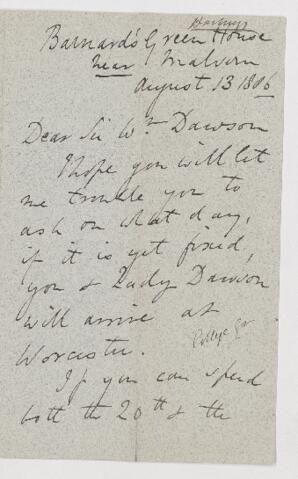 Barnard's Green House
Near Malvern
August 13 1886
Dear Sir Wm Dawson
I hope you will let
me trouble you to
ask on what day,
if it is yet fixed,
you & Lady Dawson
will arrive at
Worcester.
If you can spend
both the 20th & the